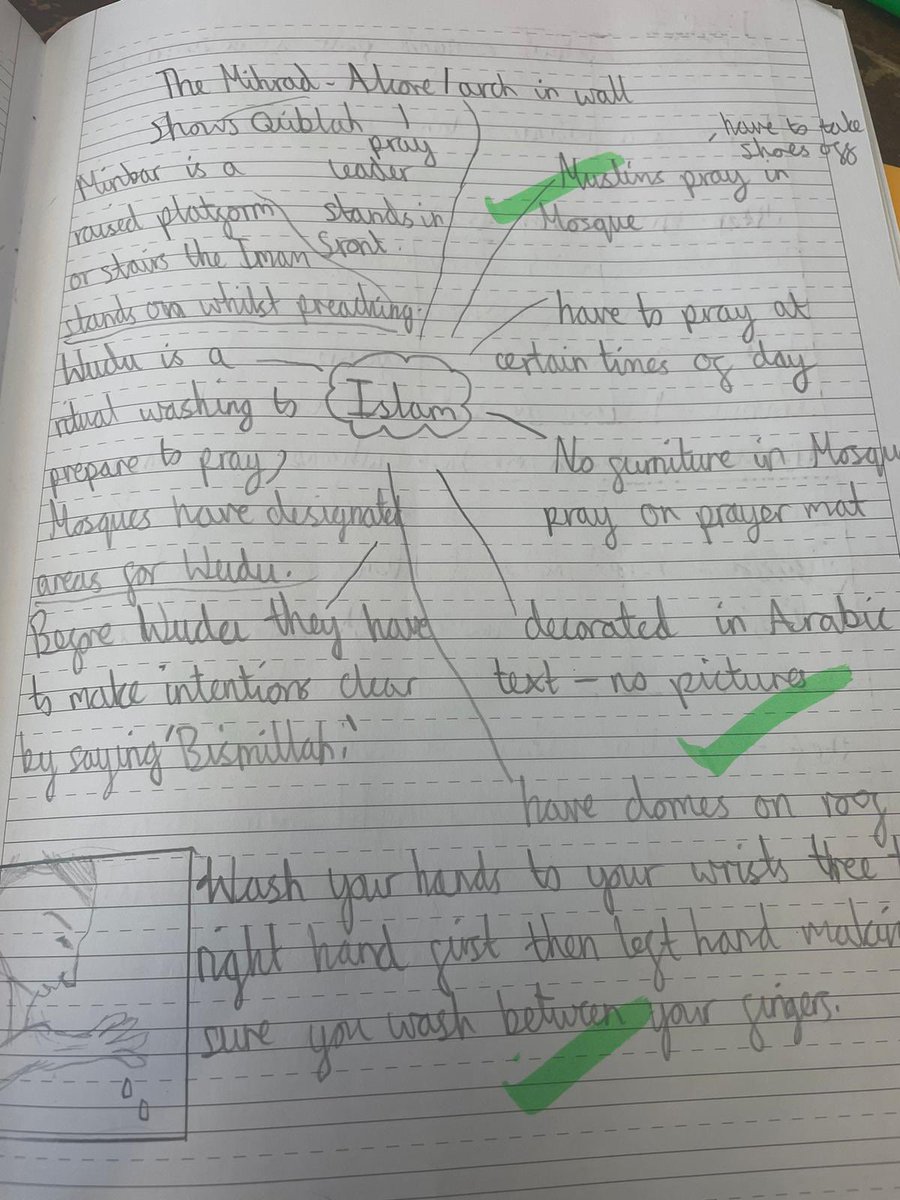 The Mihrad - Alcove/arch in wall
shows Quiblah
pray
leader
stands in
front.
Minbar is a
raised platform
or stairs the Iman
stands on whilst preaching.
have to take
shoes off
Muslins pray in
Mosque
have to pray at
certain times of day
Wudu is a
ritual washing to
prepare to pray,
Mosques have designated
areas for Wudu.
Islam
No furniture in Mosqu
pray on prayer mat
Before Wudu they have
to make intentions clear
by saying 'Bismillah'.
decorated in Arabic
text - no pictures
have domes on roof
Wash your hands to your wrists three
right hand first then left hand makin
sure you wash between your fingers.